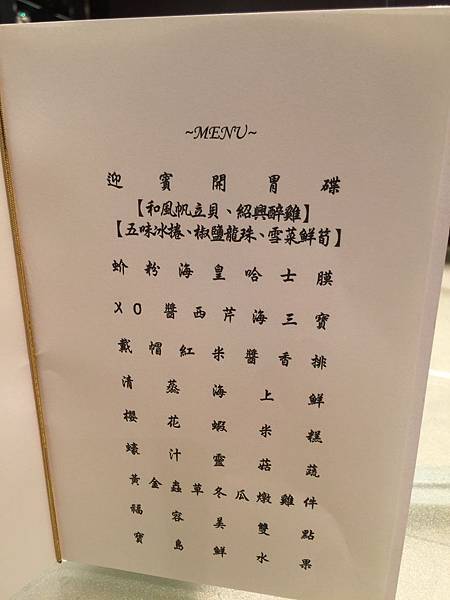 ~MENU~
迎賓開胃碟
【和風帆立貝、紹興醉雞】
【五味冰捲、椒鹽龍珠、雪菜鮮筍】
蚧粉海皇哈士膜
XO醬西芹海三寶
戴帽紅米醬香排
清蒸海上鮮
櫻花蝦米糕
蠔汁靈菇蔬
黃金蟲草冬瓜燉雞件
福容美雙點
寶島鮮水果